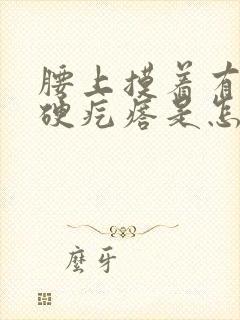 腰上摸着有
硬疙瘩是怎
麽牙